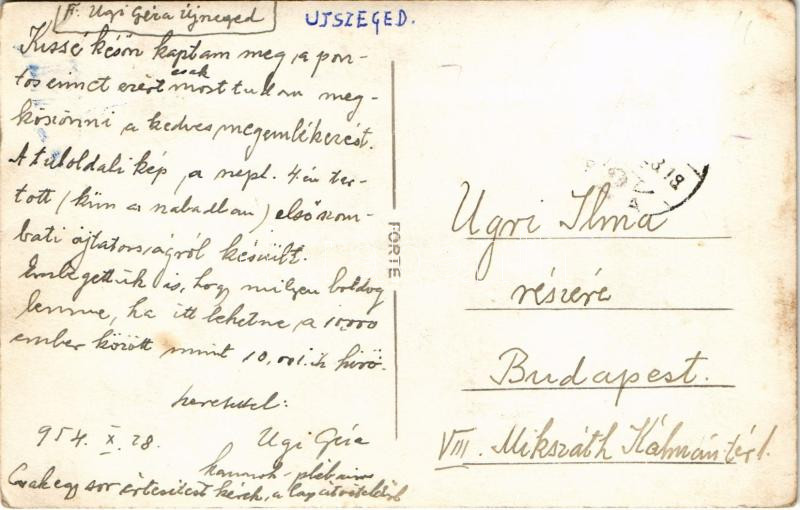 F. Ugi Géza Újszeged
UJSZEGED.
Kissé későn kaptam meg, a pon-
tos címet ezért csak most tudom meg-
köszönni a kedves megemlékezést.
A túloldali kép, a szept. 4.én tar-
tott (künn a szabadban) elsőszom-
bati ájtatosságról készült.
Emlegettük is, hogy milyen boldog
lenne, ha itt lehetne, a 10,000
ember között mint 10,001.ik hívő.
Szeretettel:
954. X. 28. Ugi Géza
kanonok-plébános
Csak egy sor értesítést kérek, a lap átvételéről
FORTE
Ugri Ilma
részére
Budapest.
VIII. Mikszáth Kálmán tér 1.